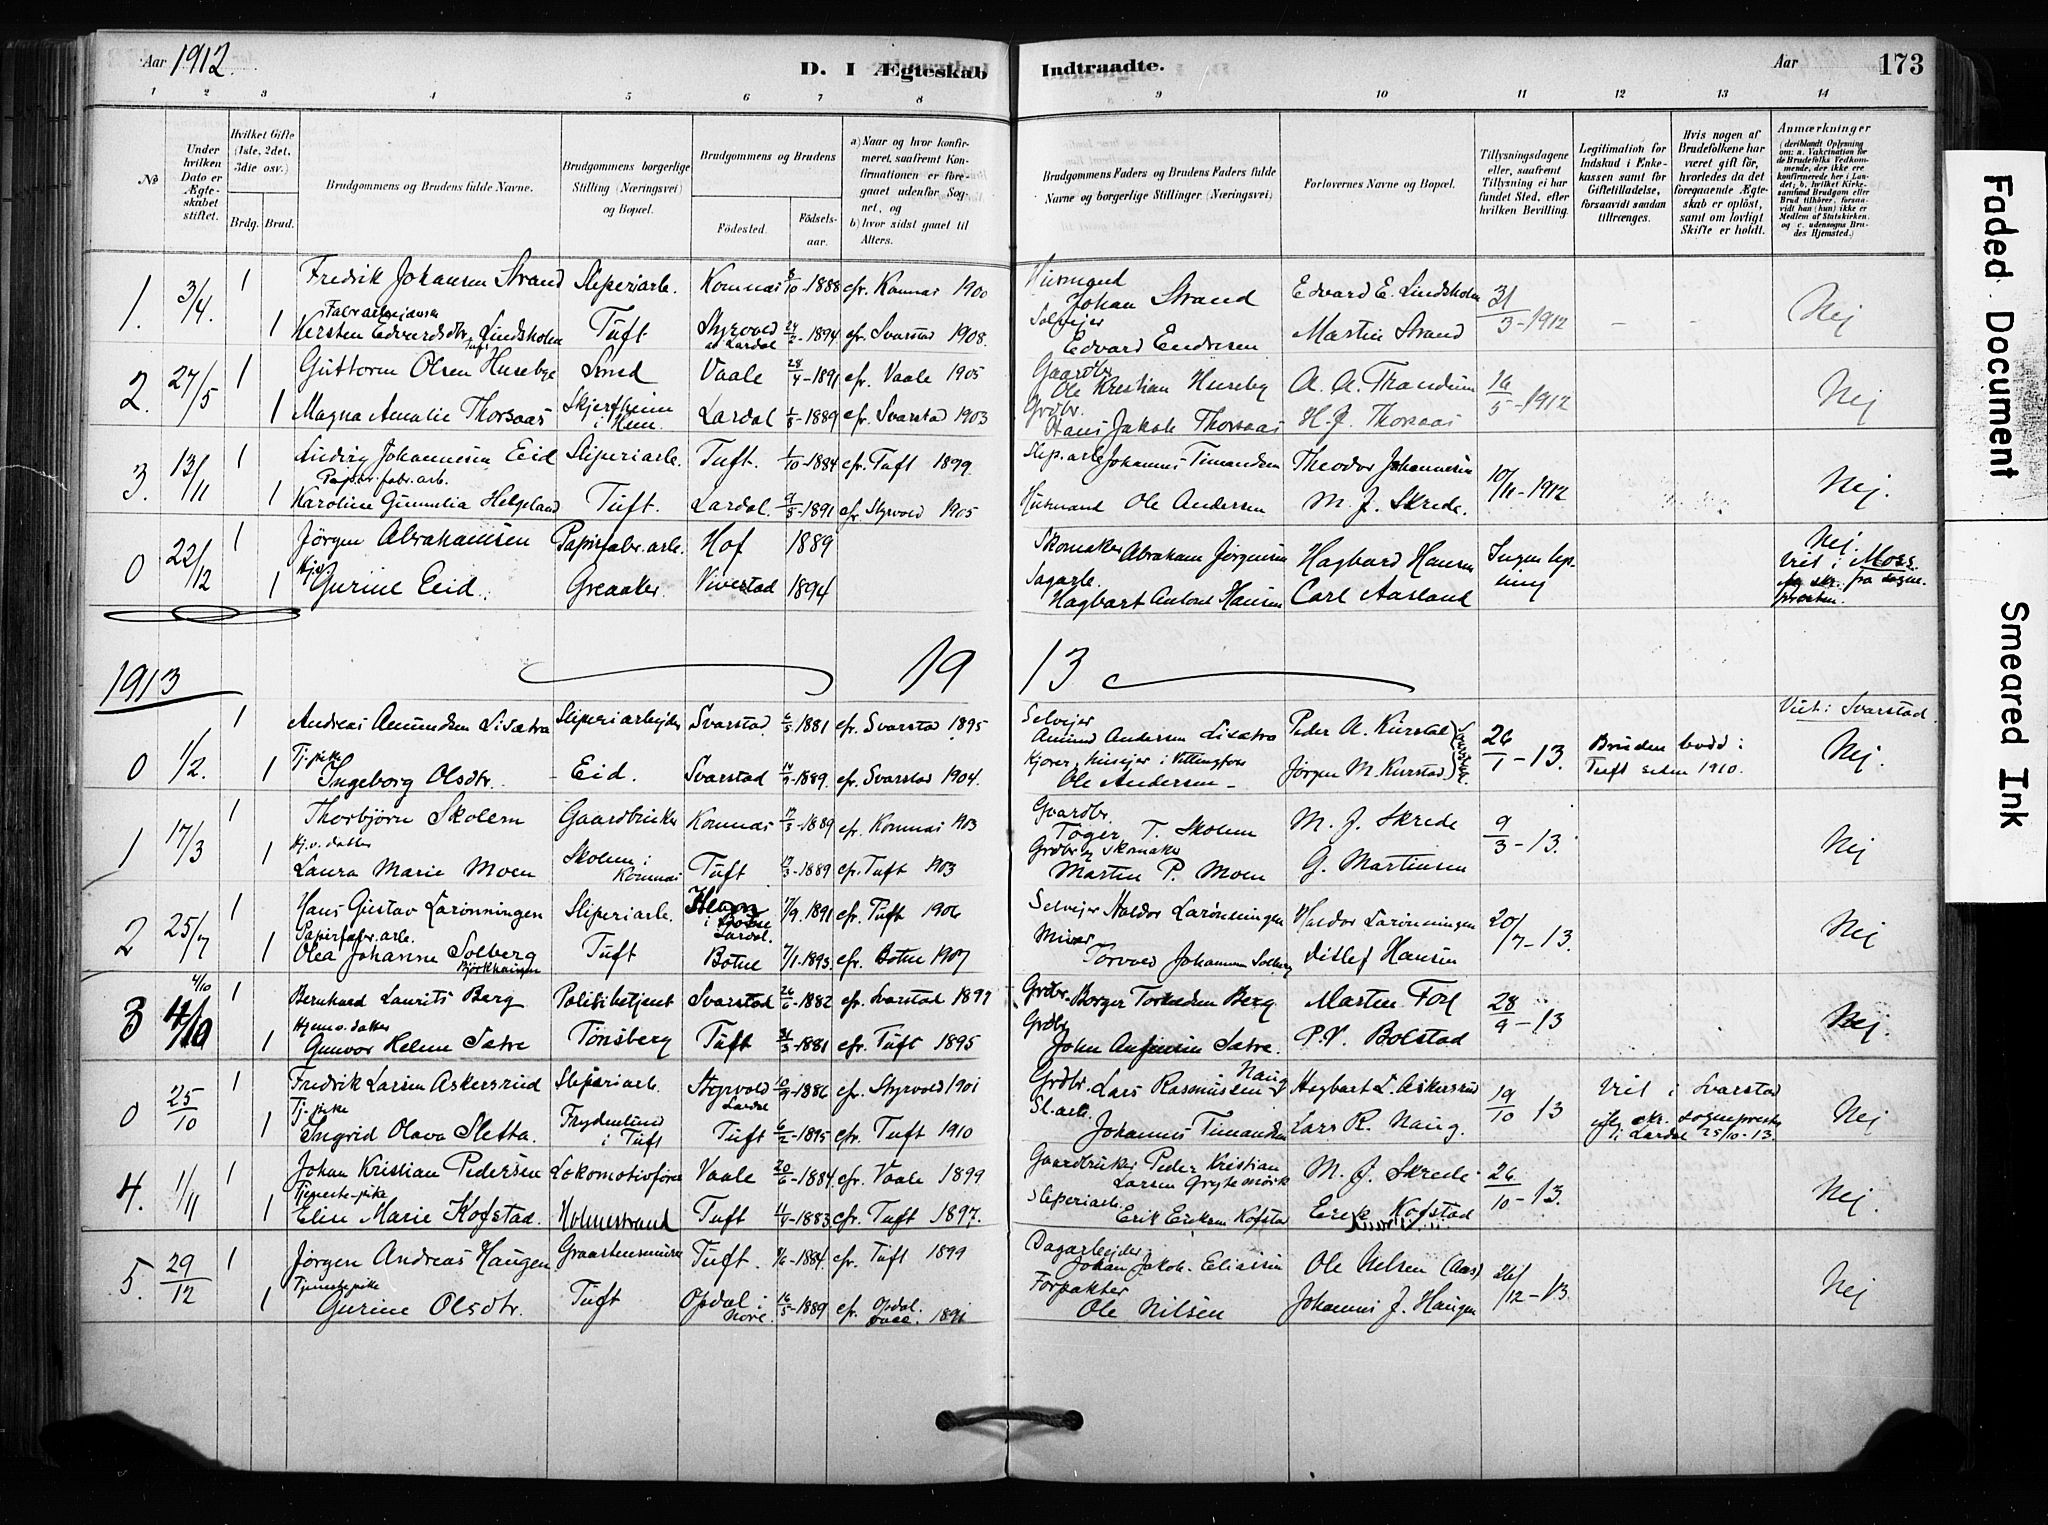 Aar 1912.
D. I Ægteskab Indtraadte.
Aar 173
1 2 3 4 5 6 7 8 9 10 11 12 13 14
No
Under hvilken Dato er Ægteskabet stiftet.
Hvilket Gifte (1ste, 2det, 3die osv.)
Brdg. Brud.
Brudgommens og Brudens fulde Navne.
Brudgommens borgerlige Stilling (Næringsvei) og Bopæl.
Brudgommens og Brudens
Fødested. Fødsels-aar.
a) Naar og hvor konfirmeret, saafremt Konfirmationen er foregaaet udenfor Sognet, og
b) hvor sidst gaaet til Alters.
Brudgommens Faders og Brudens Faders fulde Navne og borgerlige Stillinger (Næringsvei)
Forlovernes Navne og Bopæl.
Tillysningsdagene eller, saafremt Tillysning ei har fundet Sted, efter hvilken Bevilling.
Legitimation for Indskud i Enkekassen samt for Giftetilladelse, forsaavidt saadan tiltrænges.
Hvis nogen af Brudefolkene har været gift før, hvorledes da det foregaaende Ægteskab er opløst, samt om lovligt Skifte er holdt.
Anmærkninger (deriblandt Oplysning om: a. Vakcination for de Brudefolks Vedkommende, der ikke ere konfirmerede her i Landet; b. hvilket Kirkesamfund Brudgom eller Brud tilhører, forsaavidt han (hun) ikke er Medlem af Statskirken, og c. udensogns Brudes Hjemsted.)
1. 3/4. 1 Fredrik Johansen Strand Sliperiarb. Komnæs 8/10-1888 cfr. Komnæs 1900 Husmand Johan Strand Edvard E. Lindsholm 31/3-1912 - - Nej
Fabrarbejderske
1 Kersten Edvardsdtr. Lindsholm Tuft Styrvold i Lardal 24/2-1894 cfr. Svarstad 1908. Selvejer Edvard Endresen Martin Strand
2. 27/5 1 Guttorm Olsen Huseby Smed Vaale 28/4-1891 cfr. Vaale 1905 Gaardbr. Ole Kristian Huseby A. A. Trandum 16/5-1912 Nej
1 Magna Amalie Thorsaas Skjerfheim i Hem Lardal 1/8-1889 cfr. Svarstad 1903 Grdbr. Hans Jakob Thorsaas H. J. Thorsaas
3. 13/11 1 Ludvig Johannesen Eid Sliperiarb. Tuft. 1/10-1884 cfr. Tuft 1899. Slip.arb. Johannes Timandsen Theodor Johannesen 10/11-1912 Nej.
Papir.fabr.arb.
1 Karoline Gunnilia Helgeland Tuft. Lardal. 9/5-1891 cfr. Styrvold 1905 Husmand Ole Andersen M. J. Skrede.
0 22/12 1 Jørgen Abrahamsen Papirfabr.arb. Hof 1889 Skomaker Abraham Jørgensen Hagbard Hansen Ingen lysning Nej.
1 Gurine Eid. Greaaker Vivestad 1894 Sagarb. Hagbart Antons Hansen Carl Aasland Viet i Moss fra sogne-
presten.
1913 19 13
Viet i Svarstad.
0 1/2. 1 Andreas Amundsen Lisætra Sliperiarbejder Svarstad 6/5-1881 cfr. Svarstad 1895 Selvejer Amund Andersen Lisætra Peder A. Kurstad 26/1-13. Bruden bodd i Nej.
Tj.pike
1 Ingeborg Olsdtr. Eid. Svarstad 14/9-1889. cfr. Svarstad 1904. Kjører, husejer i Vittingfoss Ole Andersen - Jørgen M. Kurstad Tuft siden 1910.
1 17/3 1 Thorbjørn Skolem Gaardbruker Komnæs 17/3-1889 cfr. Komnæs 1903 Gaardbr. Toger T. Skolem M. J. Skrede 9/3-13. Nej
Hj.v. datter
1 Laura Marie Moen Skolem i Komnæs Tuft 19/3-1889 cfr. Tuft 1903 Grdbr. og skomaker Martin P. Moen G. Martinsen
2 25/7 1 Hans Gustav Larønningen Sliperiarb. Lardal. 7/9.1891 cfr. Tuft 1906 Selvejer Haldor Larønningen Haldor Larønningen 20/7-13. Nej
Papirfabr.arb.
1 Olea Johanne Solberg Bjørkhaugen Tuft Botne 7/1-1893. cfr. Botne 1907 Torvald Johannesen Solberg Ditlef Hansen
3 4/10 1 Bernhard Laurits Berg Politibetjent Svarstad 26/6-1882 cfr. Svarstad 1897 Grdbr. Borger Torkildsen Berg Martin Foss 28/9-13 Nej.
Hjemv. datter
1 Gunvor Helene Sætre Tønsberg Tuft 31/3-1881 cfr. Tuft 1895 Grdbr. John Anfinsen Sætre. P. V. Bolstad
0 25/10 1 Fredrik Larsen Askersrud Sliperiarb. Styrvold Lardal 10/9-1886 cfr. Styrvold 1901 Grdbr. Lars Rasmussen Naug Hagbart L. Askersrud 19/10 13 Viet i Svarstad Nej
Tj.pike
1 Ingrid Olava Sletta. Frydenlund i Tuft Tuft 6/2-1895 cfr. Tuft 1910 Sl.arb. Johannes Timandsen Lars R. Naug. iflg. skr. sogneprest i Lardal 25/10-13.
4. 1/11 1 Johan Kristian Pedersen Lokomotivfører Vaale 20/6-1884 cfr. Vaale 1899 Gaardbruker Peder Kristian Larsen M. J. Skrede 26/10-13. Nej.
Tjeneste-pike
1 Elise Marie Kofstad. Holmestrand Tuft 4/4-1883. cfr. Tuft 1897. Sliperiarb. Erik Eriksen Kofstad Erik Kofstad
5. 29/12 1 Jørgen Andreas Haugen Graastensmurer Tuft. 7/6-1884. cfr. Tuft 1899 Dagarbejder Johan Jakob Eliassen Ole Nilsen (Aas) 26/12-13. Nej
Tjenestepike
1 Gurine Olsdtr. Tuft Opdal i Nore. 16/5-1889 cfr. Opdal 1891 Forpakter Ole Nilsen Johannes J. Haugen
Faded Document
Smeared Ink